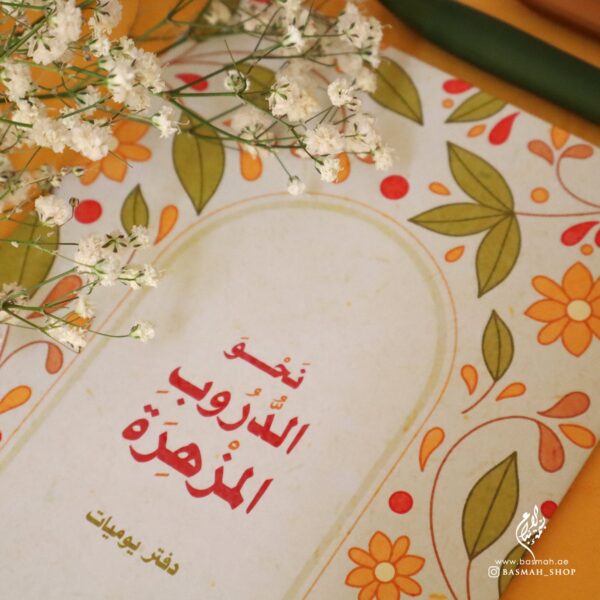 نَحْوَ
الدُّرُوبِ
المُزْهِرَة
دفتر يوميات
www.basmah.ae
BASMAH_SHOP